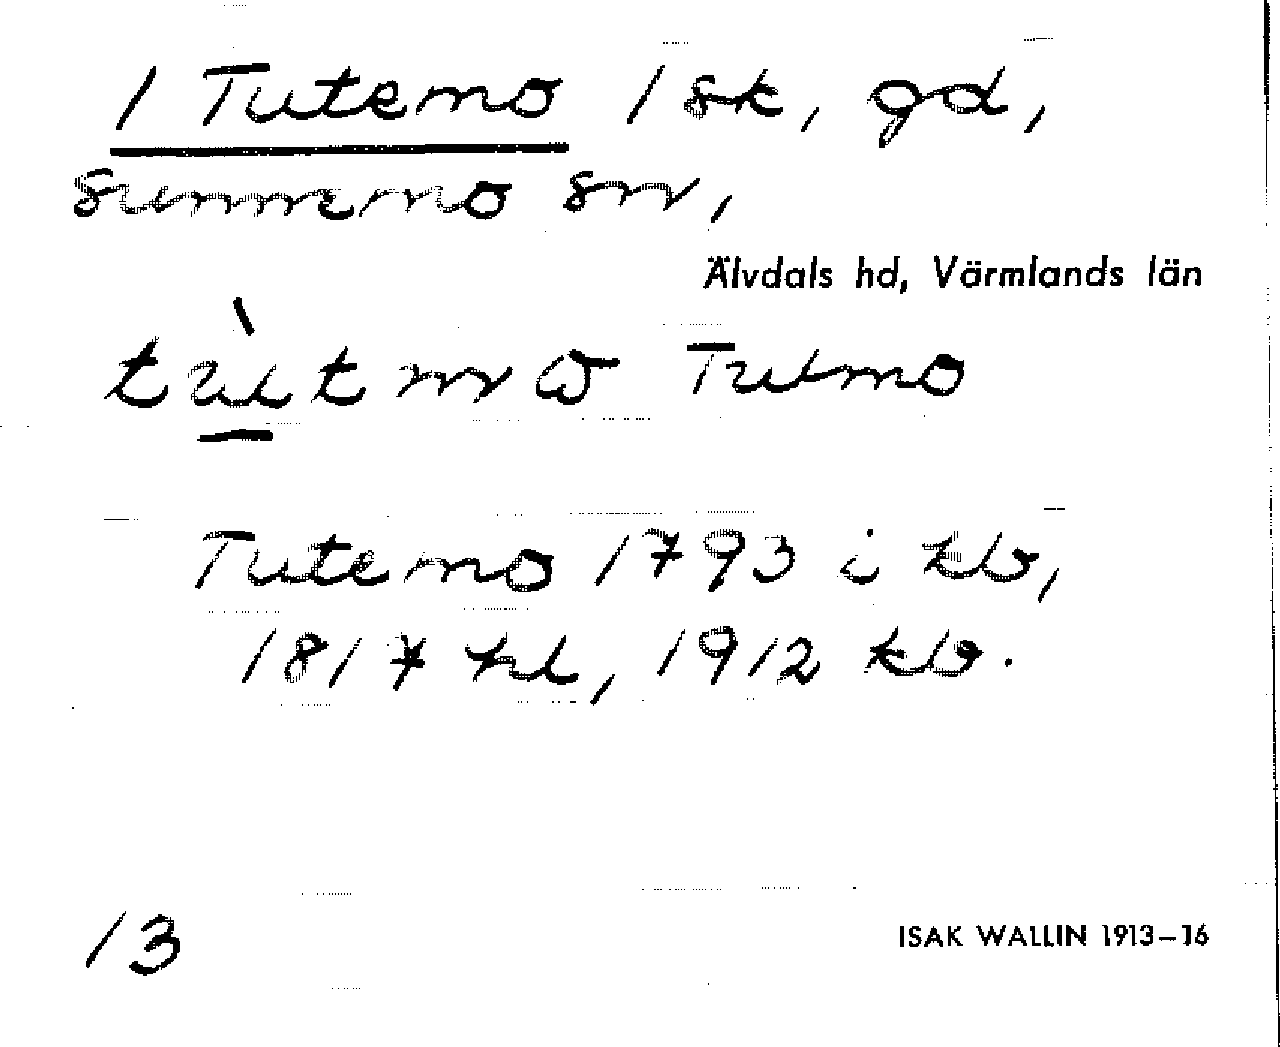 1 Tutemo 1 sk, gd,
Sunnemo sn,
Älvdals hd, Värmlands län
tùtmω Tutmo
Tutemo 1793 i kb,
1817 hl, 1912 kb.
13
ISAK WALLIN 1913–16